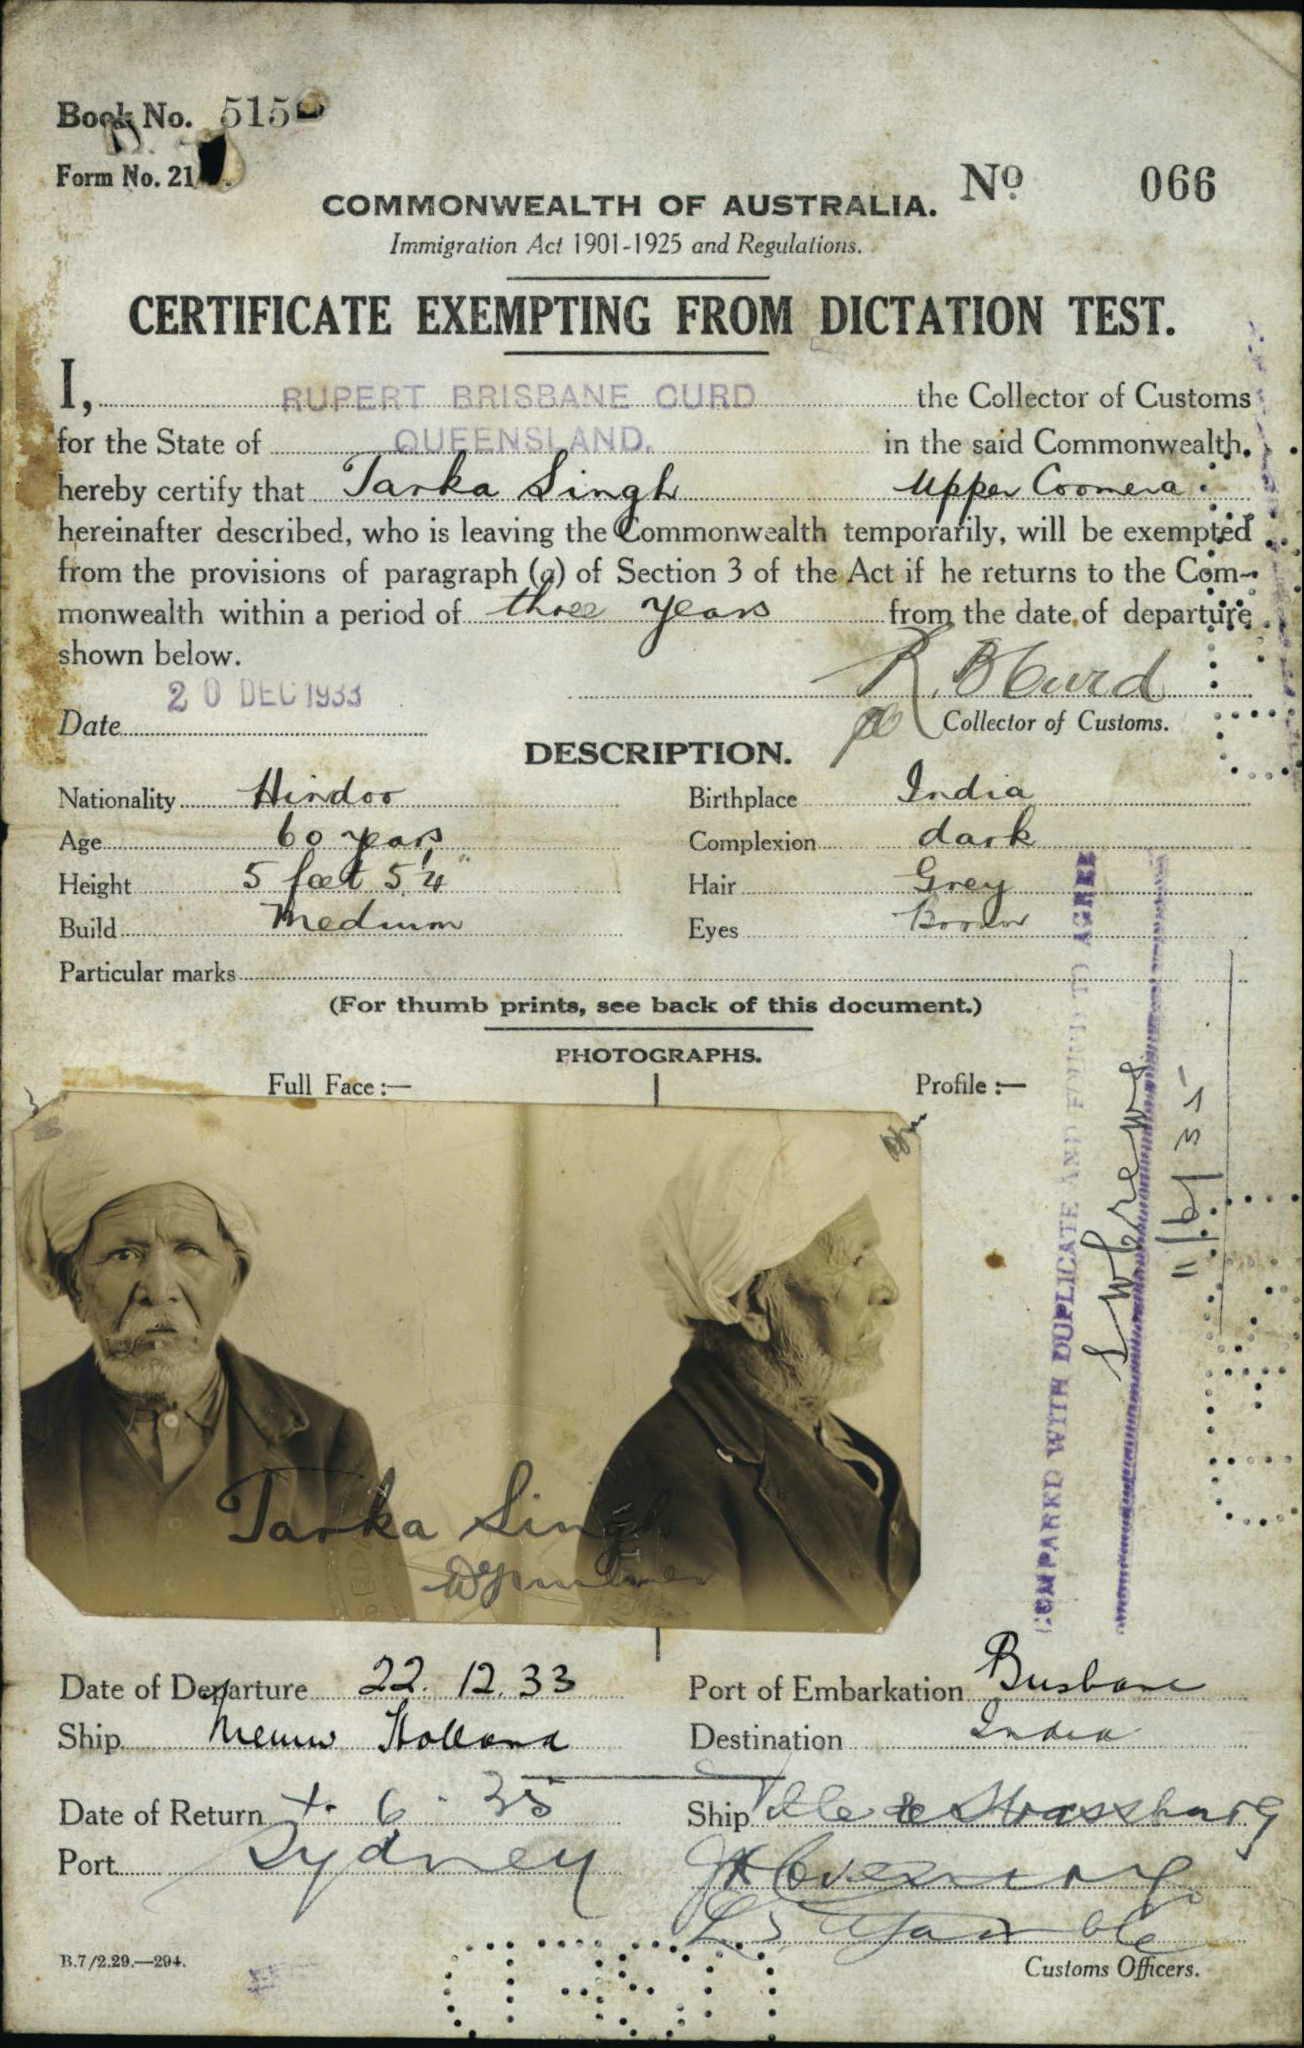 Book No. 515
Form No. 21
No 066
COMMONWEALTH OF AUSTRALIA.
Immigration Act 1901-1925 and Regulations.
CERTIFICATE EXEMPTING FROM DICTATION TEST.
I, RUPERT BRISBANE CURD the Collector of Customs
for the State of QUEENSLAND. in the said Commonwealth,
hereby certify that Tarka Singh Upper Coomera
hereinafter described, who is leaving the Commonwealth temporarily, will be exempted
from the provisions of paragraph (a) of Section 3 of the Act if he returns to the Com-
monwealth within a period of three years from the date of departure
shown below.
R. B Curd
Date 20 DEC 1933 Collector of Customs.
DESCRIPTION.
Nationality Hindoo Birthplace India
Age 60 years Complexion dark
Height 5 feet 5 1/4" Hair Grey
Build Medium Eyes Brown
Particular marks
(For thumb prints, see back of this document.)
PHOTOGRAPHS.
Full Face:— Profile:—
Tarka Singh
COMPARED WITH DUPLICATE AND FOUND TO AGREE
11/6/35
Date of Departure 22.12.33 Port of Embarkation Brisbane
Ship Nieuw Holland Destination India
Date of Return 6. 35 Ship Ville de Strassburg
Port Sydney
Customs Officers.
B.7/2.29.—294.